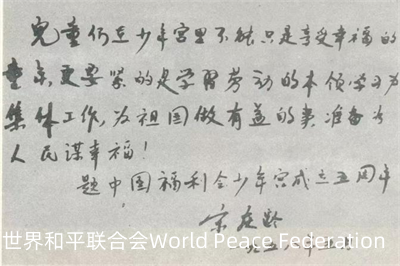 儿童们在少年宫里不能只是享受幸福的
童年,更要紧的是学习劳动的本领,学习为
集体工作,为祖国做有益的事,准备为
人民谋幸福!
题中国福利会少年宫成立五周年
宋庆龄
世界和平联合会World Peace Federation
一九五八年五月